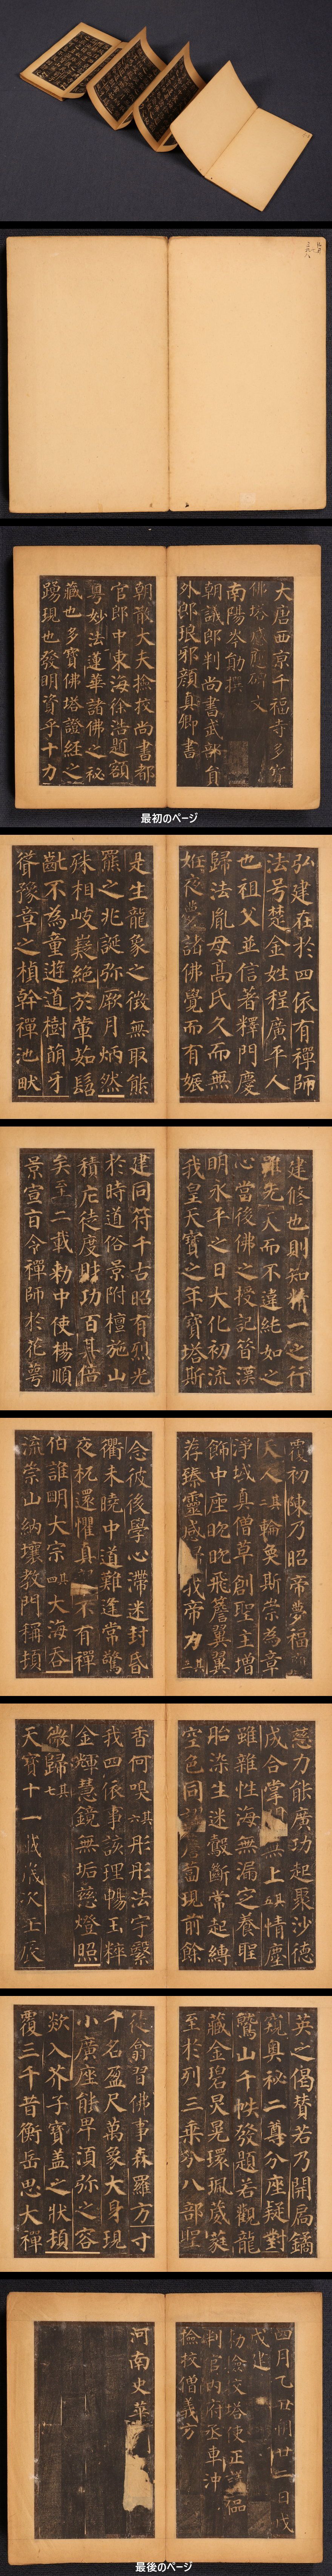 大唐西京千福寺多寶
佛塔感應碑文
南陽岑勛撰
朝議郎判尚書武部員
外郎琅邪顏真卿書
朝散大夫撿校尚書都
官郎中東海徐浩題額
粵妙法蓮華諸佛之秘
藏也多寶佛塔證經之
踴現也發明資乎十力
最初のページ
弘建在於四依有禪師
法号楚金姓程廣平人
也祖父並信著釋門慶
歸法胤母高氏久而無
姙夜夢諸佛覺而有娠
是生龍象之徵無取熊
羆之兆誕弥厥月炳然
殊相岐嶷絕於葷茹髫
齓不為童遊道樹萌牙
聳豫章之楨幹禪池畎
建修也則知精一之行
雖先天而不違純如之
心當後佛之授記昔漢
明永平之日大化初流
我皇天寶之年寶塔斯
建同符千古昭有烈光
於時道俗景附檀施山
積庀徒度財功百其倍
矣至二載勑中使楊順
景宣旨令禪師於花萼
覆初陳乃昭帝夢福
天人其二輪奐斯崇為章
淨域真僧草創聖主增
飾中座眈眈飛簷翼翼
荐臻靈感我帝力其三
念彼後學心滯迷封昏
衢未曉中道難逢常驚
夜枕還懼真不有禪
伯誰明大宗其四大海吞
流崇山納壤教門稱頓
慈力能廣功起聚沙德
成合掌無上其五情塵
雖雜性海無漏定養聖
胎染生迷鷇斷常起縛
空色同蔔現前餘
香何嗅其六彤彤法宇繄
我四依事該理暢玉粹
金輝慧鏡無垢慈燈照
微歸其七
天寶十一載歲次壬辰
英之偈贊若乃開扃鐍
窺奧秘二尊分座疑對
鷲山千帙發題若觀龍
藏金碧炅晃環珮葳蕤
至於列三乘分八部聖
徒翕習佛事森羅方寸
千名盈尺萬象大身現
小廣座能卑須弥之容
欻入芥子寶蓋之狀頓
覆三千昔衡岳思大禪
四月乙丑朔廿二日戊
戌建
勑撿校塔使正議
判官內府丞車沖
撿校僧義方
河南史華
最後のページ